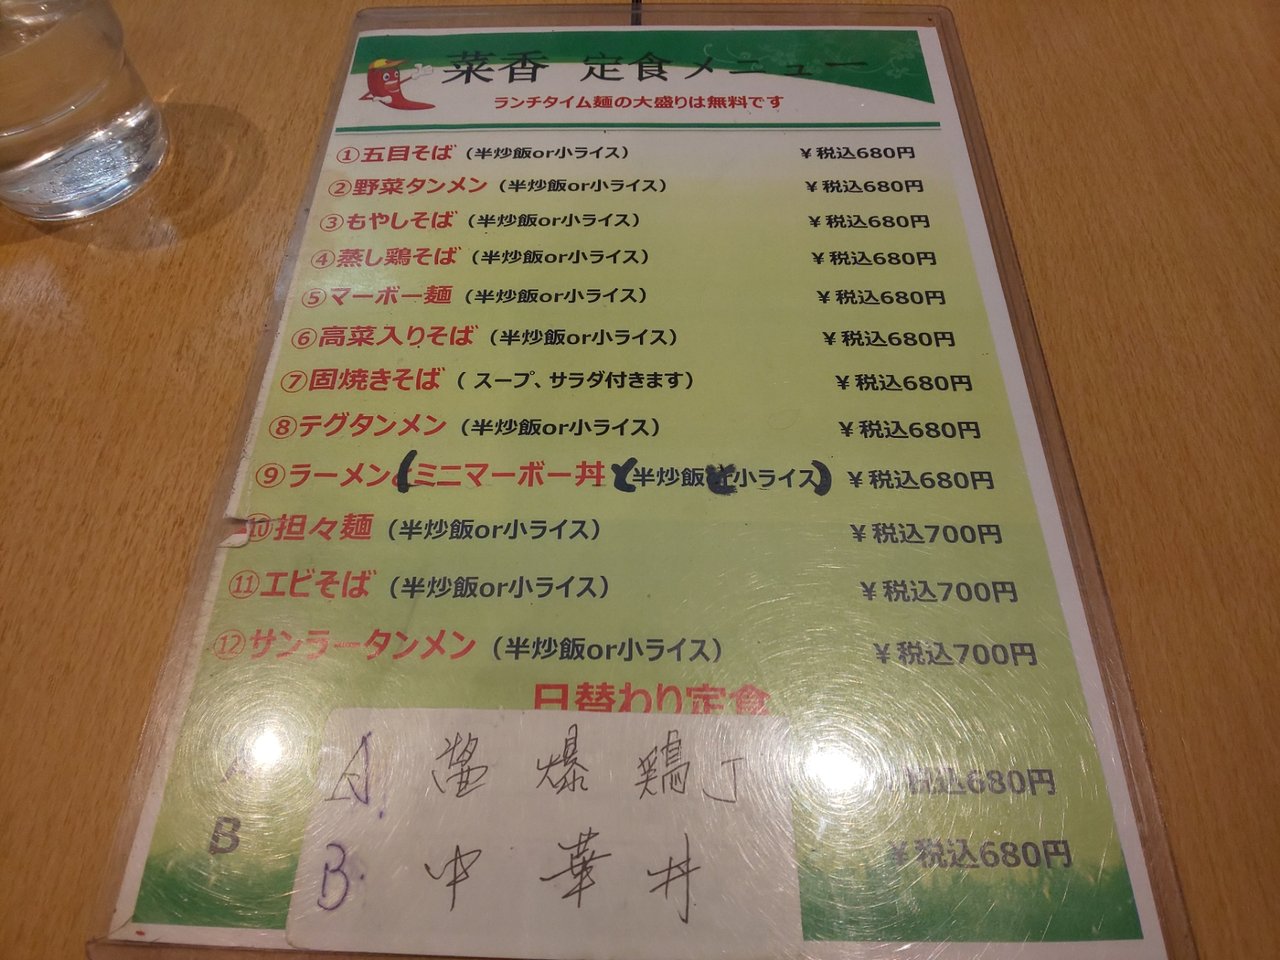 菜香 定食メニュー
ランチタイム麺の大盛りは無料です
①五目そば（半炒飯or小ライス） ￥税込680円
②野菜タンメン（半炒飯or小ライス） ￥税込680円
③もやしそば（半炒飯or小ライス） ￥税込680円
④蒸し鶏そば（半炒飯or小ライス） ￥税込680円
⑤マーボー麺（半炒飯or小ライス） ￥税込680円
⑥高菜入りそば（半炒飯or小ライス） ￥税込680円
⑦固焼きそば（ スープ、サラダ付きます） ￥税込680円
⑧テグタンメン（半炒飯or小ライス） ￥税込680円
⑨ラーメン(ミニマーボー丼 半炒飯 小ライス) ￥税込680円
⑩担々麺（半炒飯or小ライス） ￥税込700円
⑪エビそば（半炒飯or小ライス） ￥税込700円
⑫サンラータンメン（半炒飯or小ライス） ￥税込700円
日替わり定食
A 爆鶏丁 税込680円
B B. 中華丼 ￥税込680円